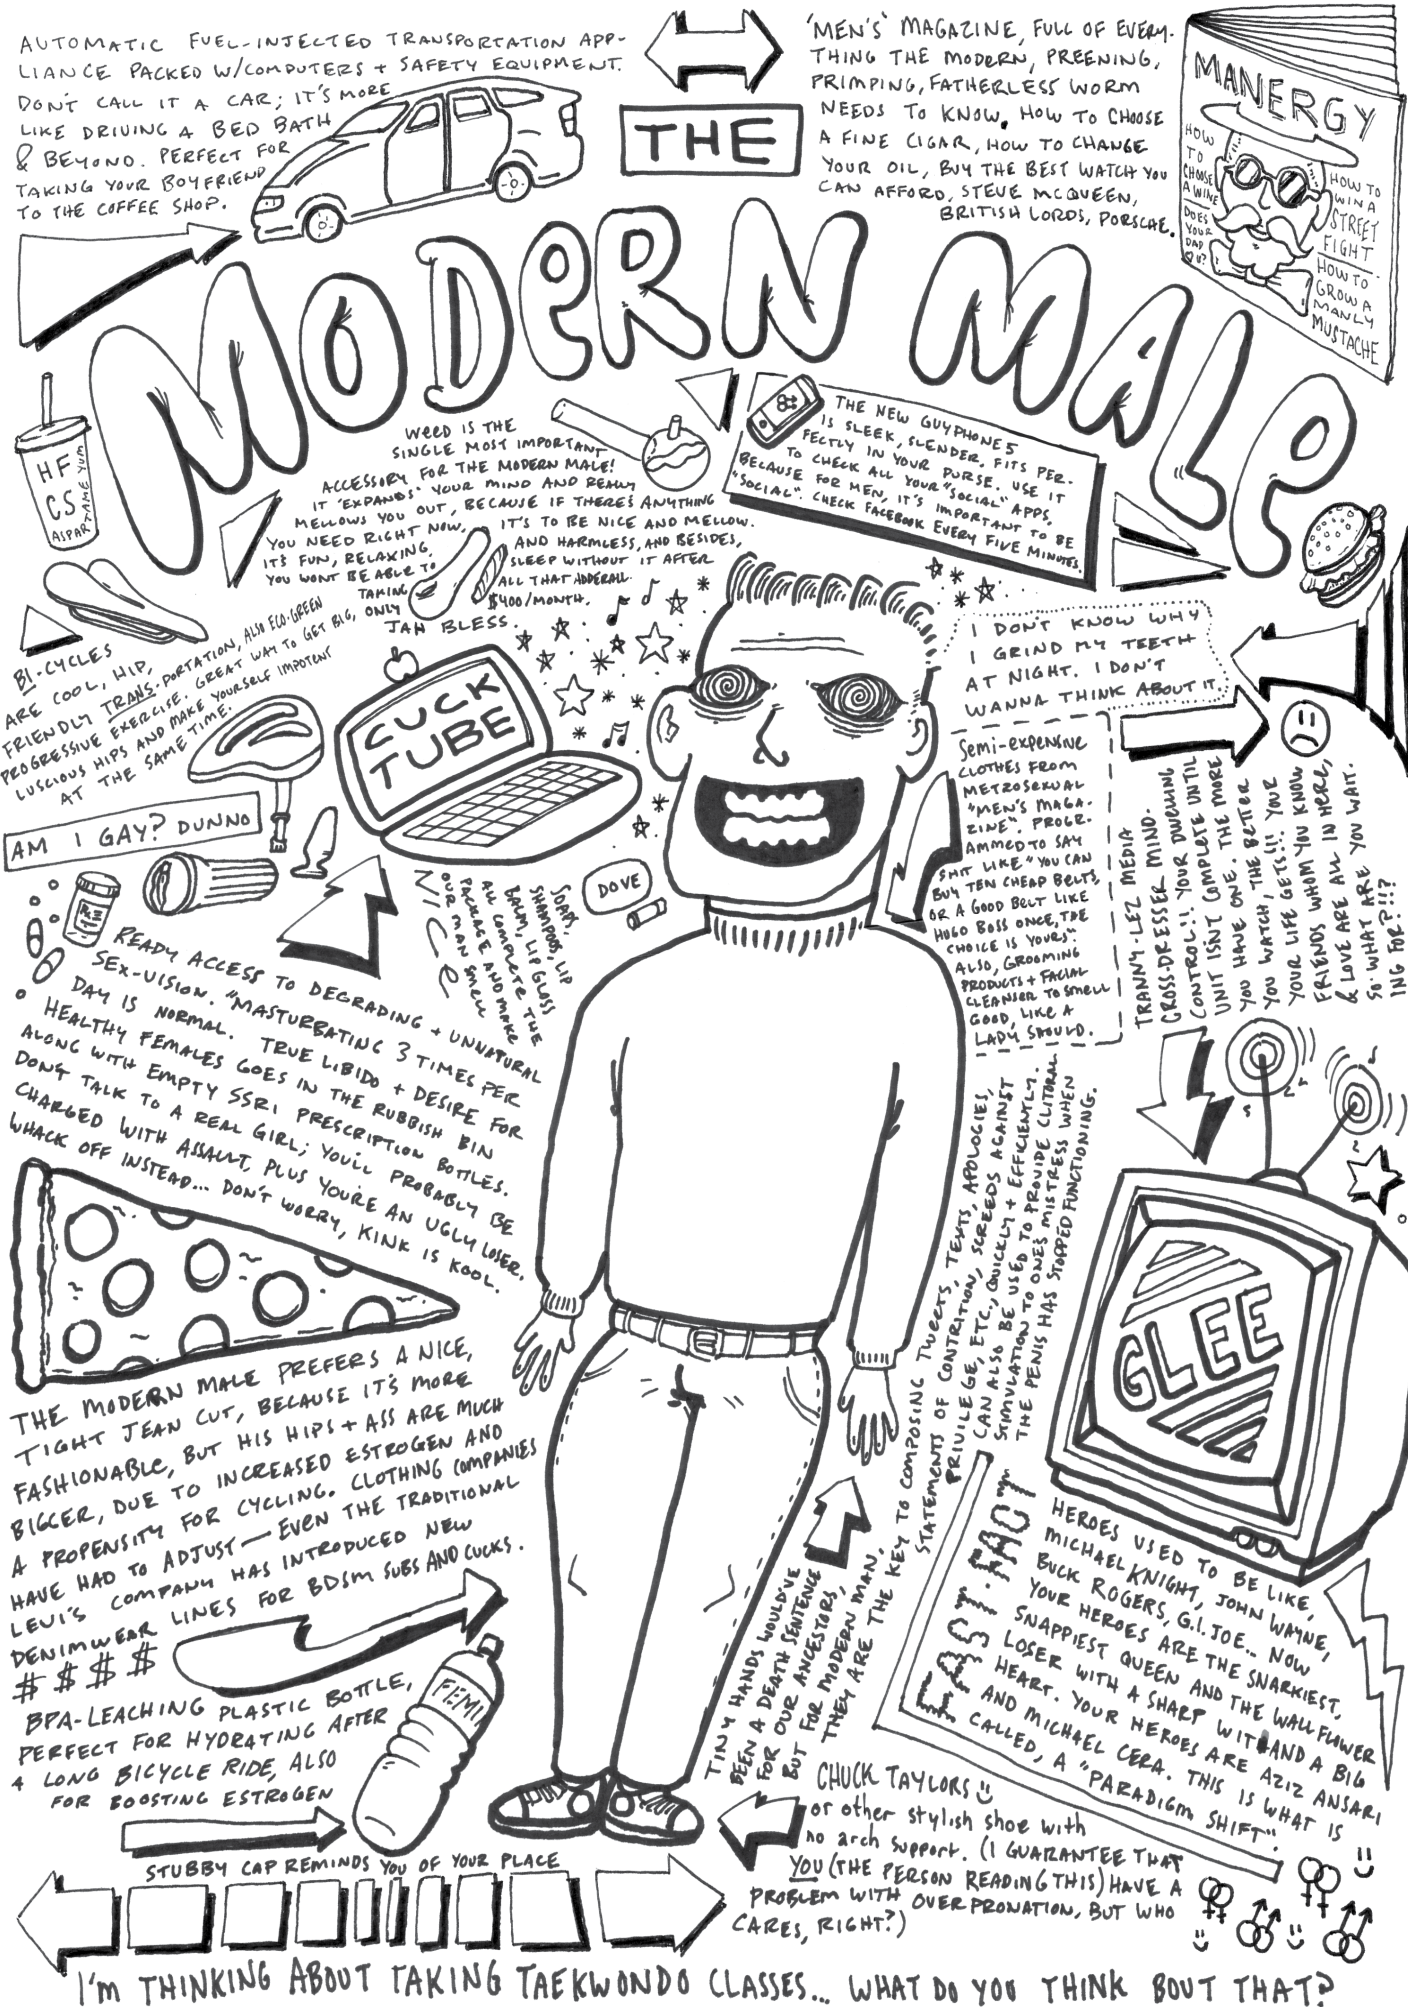 AUTOMATIC FUEL-INJECTED TRANSPORTATION APP-
LIANCE PACKED W/COMPUTERS + SAFETY EQUIPMENT.
DON'T CALL IT A CAR; IT'S MORE
LIKE DRIVING A BED BATH
& BEYOND. PERFECT FOR
TAKING YOUR BOYFRIEND
TO THE COFFEE SHOP.
THE
MODERN MALE
'MEN'S' MAGAZINE, FULL OF EVERY-
THING THE MODERN, PREENING,
PRIMPING, FATHERLESS WORM
NEEDS TO KNOW. HOW TO CHOOSE
A FINE CIGAR, HOW TO CHANGE
YOUR OIL, BUY THE BEST WATCH YOU
CAN AFFORD, STEVE MCQUEEN,
BRITISH LORDS, PORSCHE.
MANERGY
HOW
TO
CHOOSE
A WINE
DOES
YOUR
DAD
♥ U?
HOW TO
WIN A
STREET
FIGHT
HOW TO
GROW A
MANLY
MUSTACHE
HF
CS
ASPARTAME YUM
WEED IS THE
SINGLE MOST IMPORTANT
ACCESSORY FOR THE MODERN MALE!
IT "EXPANDS" YOUR MIND AND REALLY
MELLOWS YOU OUT, BECAUSE IF THERE'S ANYTHING
YOU NEED RIGHT NOW, IT'S TO BE NICE AND MELLOW.
IT'S FUN, RELAXING, AND HARMLESS, AND BESIDES,
YOU WONT BE ABLE TO SLEEP WITHOUT IT AFTER
TAKING ALL THAT ADDERALL.
ONLY $400/MONTH.
JAH BLESS.
THE NEW GUYPHONE 5
IS SLEEK, SLENDER, FITS PER-
FECTLY IN YOUR PURSE. USE IT
TO CHECK ALL YOUR "SOCIAL" APPS,
BECAUSE FOR MEN, IT'S IMPORTANT TO BE
"SOCIAL". CHECK FACEBOOK EVERY FIVE MINUTES.
BI-CYCLES
ARE COOL, HIP,
FRIENDLY TRANS-PORTATION, ALSO ECO-GREEN
PROGRESSIVE EXERCISE. GREAT WAY TO GET BIG,
LUSCIOUS HIPS AND MAKE YOURSELF IMPOTENT
AT THE SAME TIME.
AM I GAY? DUNNO
CUCK
TUBE
I DON'T KNOW WHY
I GRIND MY TEETH
AT NIGHT. I DON'T
WANNA THINK ABOUT IT.
SEMI-EXPENSIVE
CLOTHES FROM
METROSEXUAL
"MEN'S MAGA-
ZINE". PROGR-
AMMED TO SAY
SHIT LIKE "YOU CAN
BUY TEN CHEAP BELTS,
OR A GOOD BELT LIKE
HUGO BOSS ONCE, THE
CHOICE IS YOURS".
ALSO, GROOMING
PRODUCTS + FACIAL
CLEANSER TO SMELL
GOOD, LIKE A
LADY SHOULD.
TRANNY-LEZ MEDIA
CROSS-DRESSER MIND-
CONTROL!! YOUR DWELLING
UNIT ISN'T COMPLETE UNTIL
YOU HAVE ONE. THE MORE
YOU WATCH, THE BETTER
YOUR LIFE GETS!!! YOUR
FRIENDS WHOM YOU KNOW
& LOVE ARE ALL IN HERE,
SO WHAT ARE YOU WAIT-
ING FOR?!!?
DOVE
SOAPS,
SHAMPOOS, LIP
BALM, LIP GLOSS
ALL COMPLETE THE
PACKAGE AND MAKE
OUR MAN SMELL
NICE
READY ACCESS TO DEGRADING + UNNATURAL
SEX-VISION. "MASTURBATING 3 TIMES PER
DAY IS NORMAL. TRUE LIBIDO + DESIRE FOR
HEALTHY FEMALES GOES IN THE RUBBISH BIN
ALONG WITH EMPTY SSRI PRESCRIPTION BOTTLES.
DON'T TALK TO A REAL GIRL; YOU'LL PROBABLY BE
CHARGED WITH ASSAULT, PLUS YOU'RE AN UGLY LOSER.
WHACK OFF INSTEAD... DON'T WORRY, KINK IS KOOL.
THE MODERN MALE PREFERS A NICE,
TIGHT JEAN CUT, BECAUSE IT'S MORE
FASHIONABLE, BUT HIS HIPS + ASS ARE MUCH
BIGGER, DUE TO INCREASED ESTROGEN AND
A PROPENSITY FOR CYCLING. CLOTHING COMPANIES
HAVE HAD TO ADJUST—EVEN THE TRADITIONAL
LEVI'S COMPANY HAS INTRODUCED NEW
DENIMWEAR LINES FOR BDSM SUBS AND CUCKS.
$ $ $ $
BPA-LEACHING PLASTIC BOTTLE,
PERFECT FOR HYDRATING AFTER
A LONG BICYCLE RIDE, ALSO
FOR BOOSTING ESTROGEN
FEMI
STUBBY CAP REMINDS YOU OF YOUR PLACE
TINY HANDS WOULD'VE
BEEN A DEATH SENTENCE
FOR OUR ANCESTORS,
BUT FOR MODERN MAN,
THEY ARE THE KEY TO COMPOSING TWEETS, TEXTS, APOLOGIES,
STATEMENTS OF CONTRITION, SCREEDS AGAINST
PRIVILEGE, ETC., QUICKLY + EFFICIENTLY.
CAN ALSO BE USED TO PROVIDE CLITORAL
STIMULATION TO ONE'S MISTRESS WHEN
THE PENIS HAS STOPPED FUNCTIONING.
GLEE
FAST.FACT
HEROES USED TO BE LIKE,
MICHAEL KNIGHT, JOHN WAYNE,
BUCK ROGERS, G.I. JOE... NOW
YOUR HEROES ARE THE SNARKIEST,
SNAPPIEST QUEEN AND THE WALLFLOWER
LOSER WITH A SHARP WIT AND A BIG
HEART. YOUR HEROES ARE AZIZ ANSARI
AND MICHAEL CERA. THIS IS WHAT IS
CALLED, A "PARADIGM SHIFT".
CHUCK TAYLORS
or other stylish shoe with
no arch support. (I GUARANTEE THAT
YOU (THE PERSON READING THIS) HAVE A
PROBLEM WITH OVERPRONATION, BUT WHO
CARES, RIGHT?)
I'M THINKING ABOUT TAKING TAEKWONDO CLASSES... WHAT DO YOU THINK BOUT THAT?